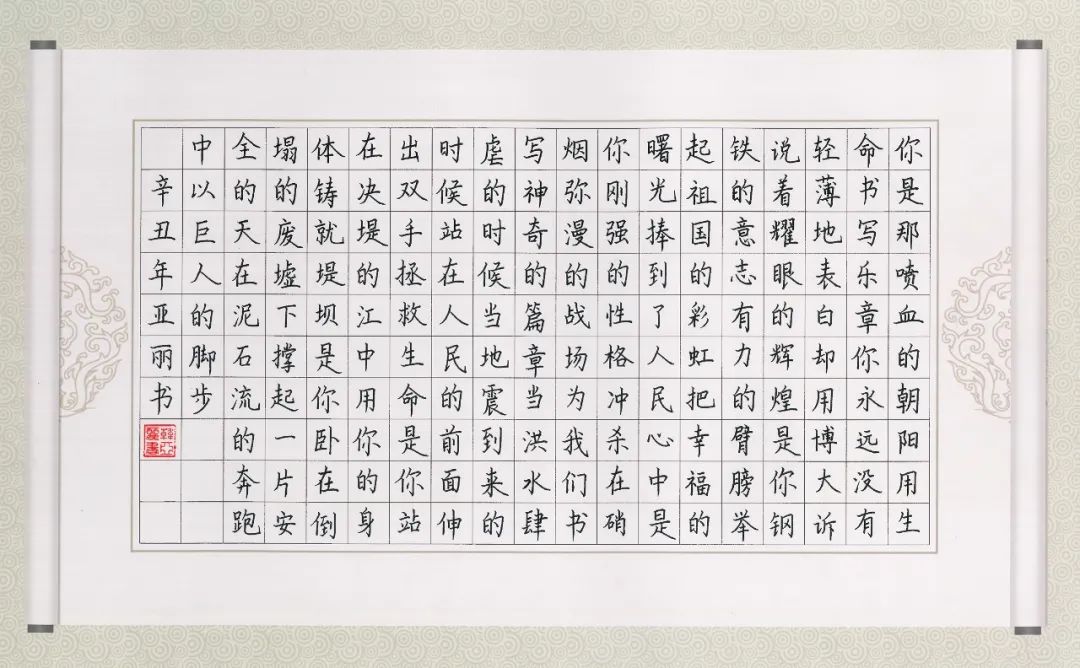 你是那喷血的朝阳用生
命书写乐章你永远没有
轻薄地表白却用博大诉
说着耀眼的辉煌是你钢
铁的意志有力的臂膀举
起祖国的彩虹把幸福的
曙光捧到了人民心中是
你刚强的性格冲杀在硝
烟弥漫的战场为我们书
写神奇的篇章当洪水肆
虐的时候当地震到来的
时候站在人民的前面伸
出双手拯救生命是你站
在决堤的江中用你的身
体铸就堤坝是你卧在倒
塌的废墟下撑起一片安
全的天在泥石流的奔跑
中以巨人的脚步
辛丑年亚丽书